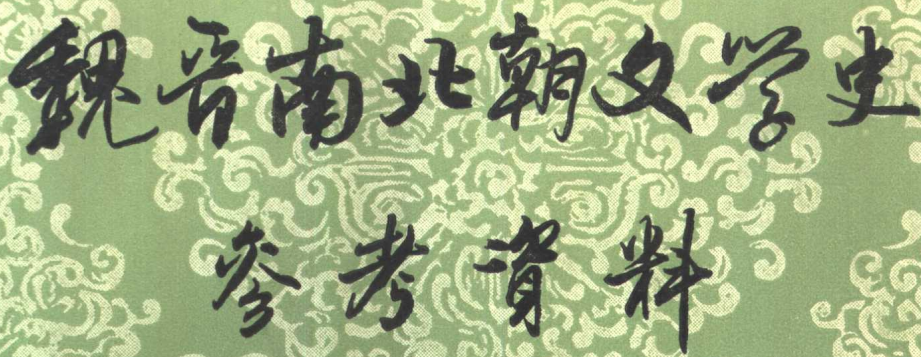 魏晋南北朝文学史
参考資料